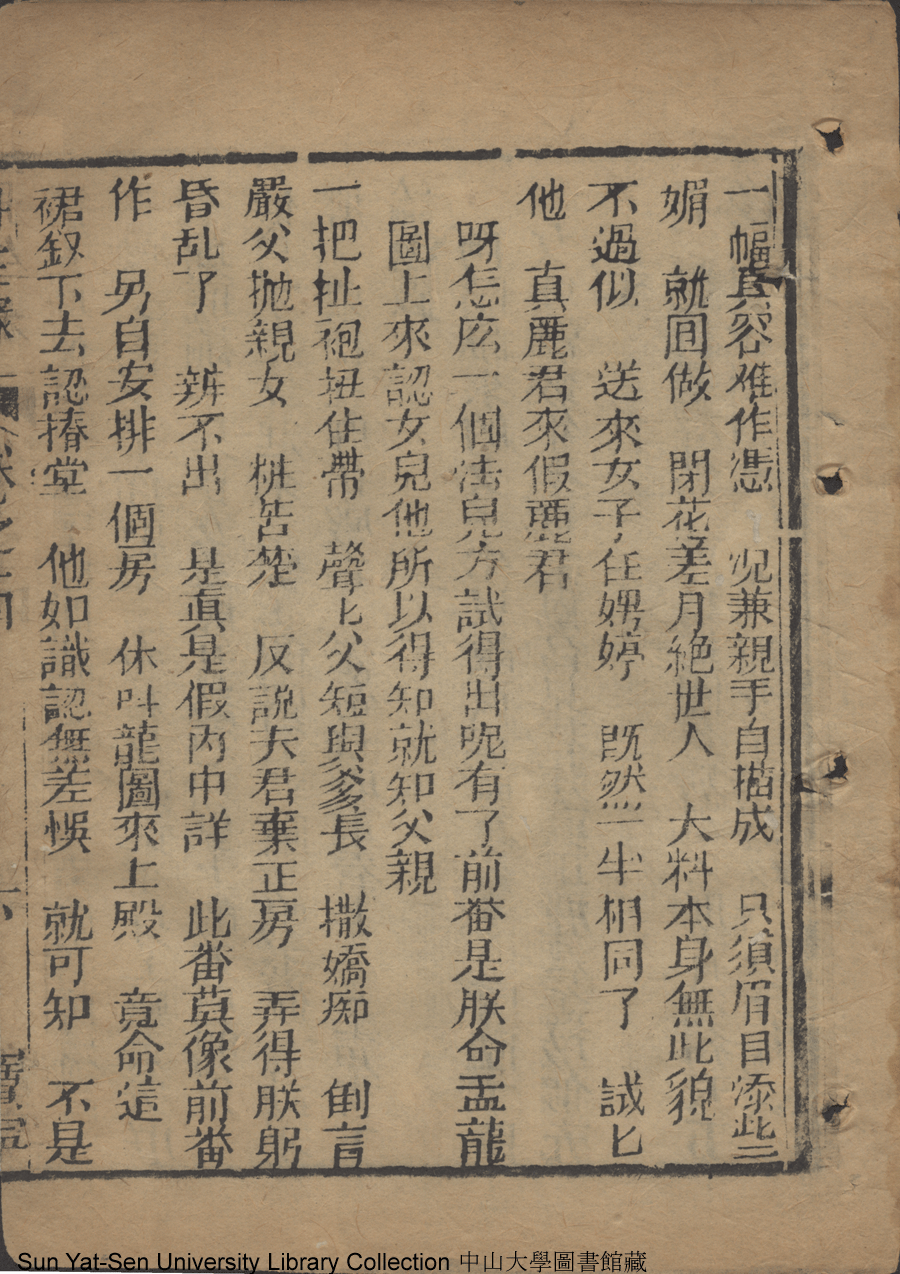 一幅真容难作憑　况兼親手自描成　只須眉目添些
媚　就囬做　閉花羞月絶世人　大料本身無此貌
不過似　送來女子任娉婷　既然一半相同了　誠匕
他　真麗君來假麗君
呀怎庅一個法兒方試得出呢有了前畨是朕命孟龍
圖上來認女兒他所以得知就知父親
一把扯袍扭住帶　聲匕父短與爹長　撒嬌痴　倒言
嚴父抛親女　粧苦楚　反説夫君棄正房　弄得朕躬
昏乱了　辨不出　是眞是假内中詳　此畨莫像前畨
作　另自安排一個房　休呌龍圖來上殿　竟命這
裙釵下去認椿堂　他如識認無差悞　就可知　不是
Sun Yat-Sen University Library Collection 中山大學圖書館藏